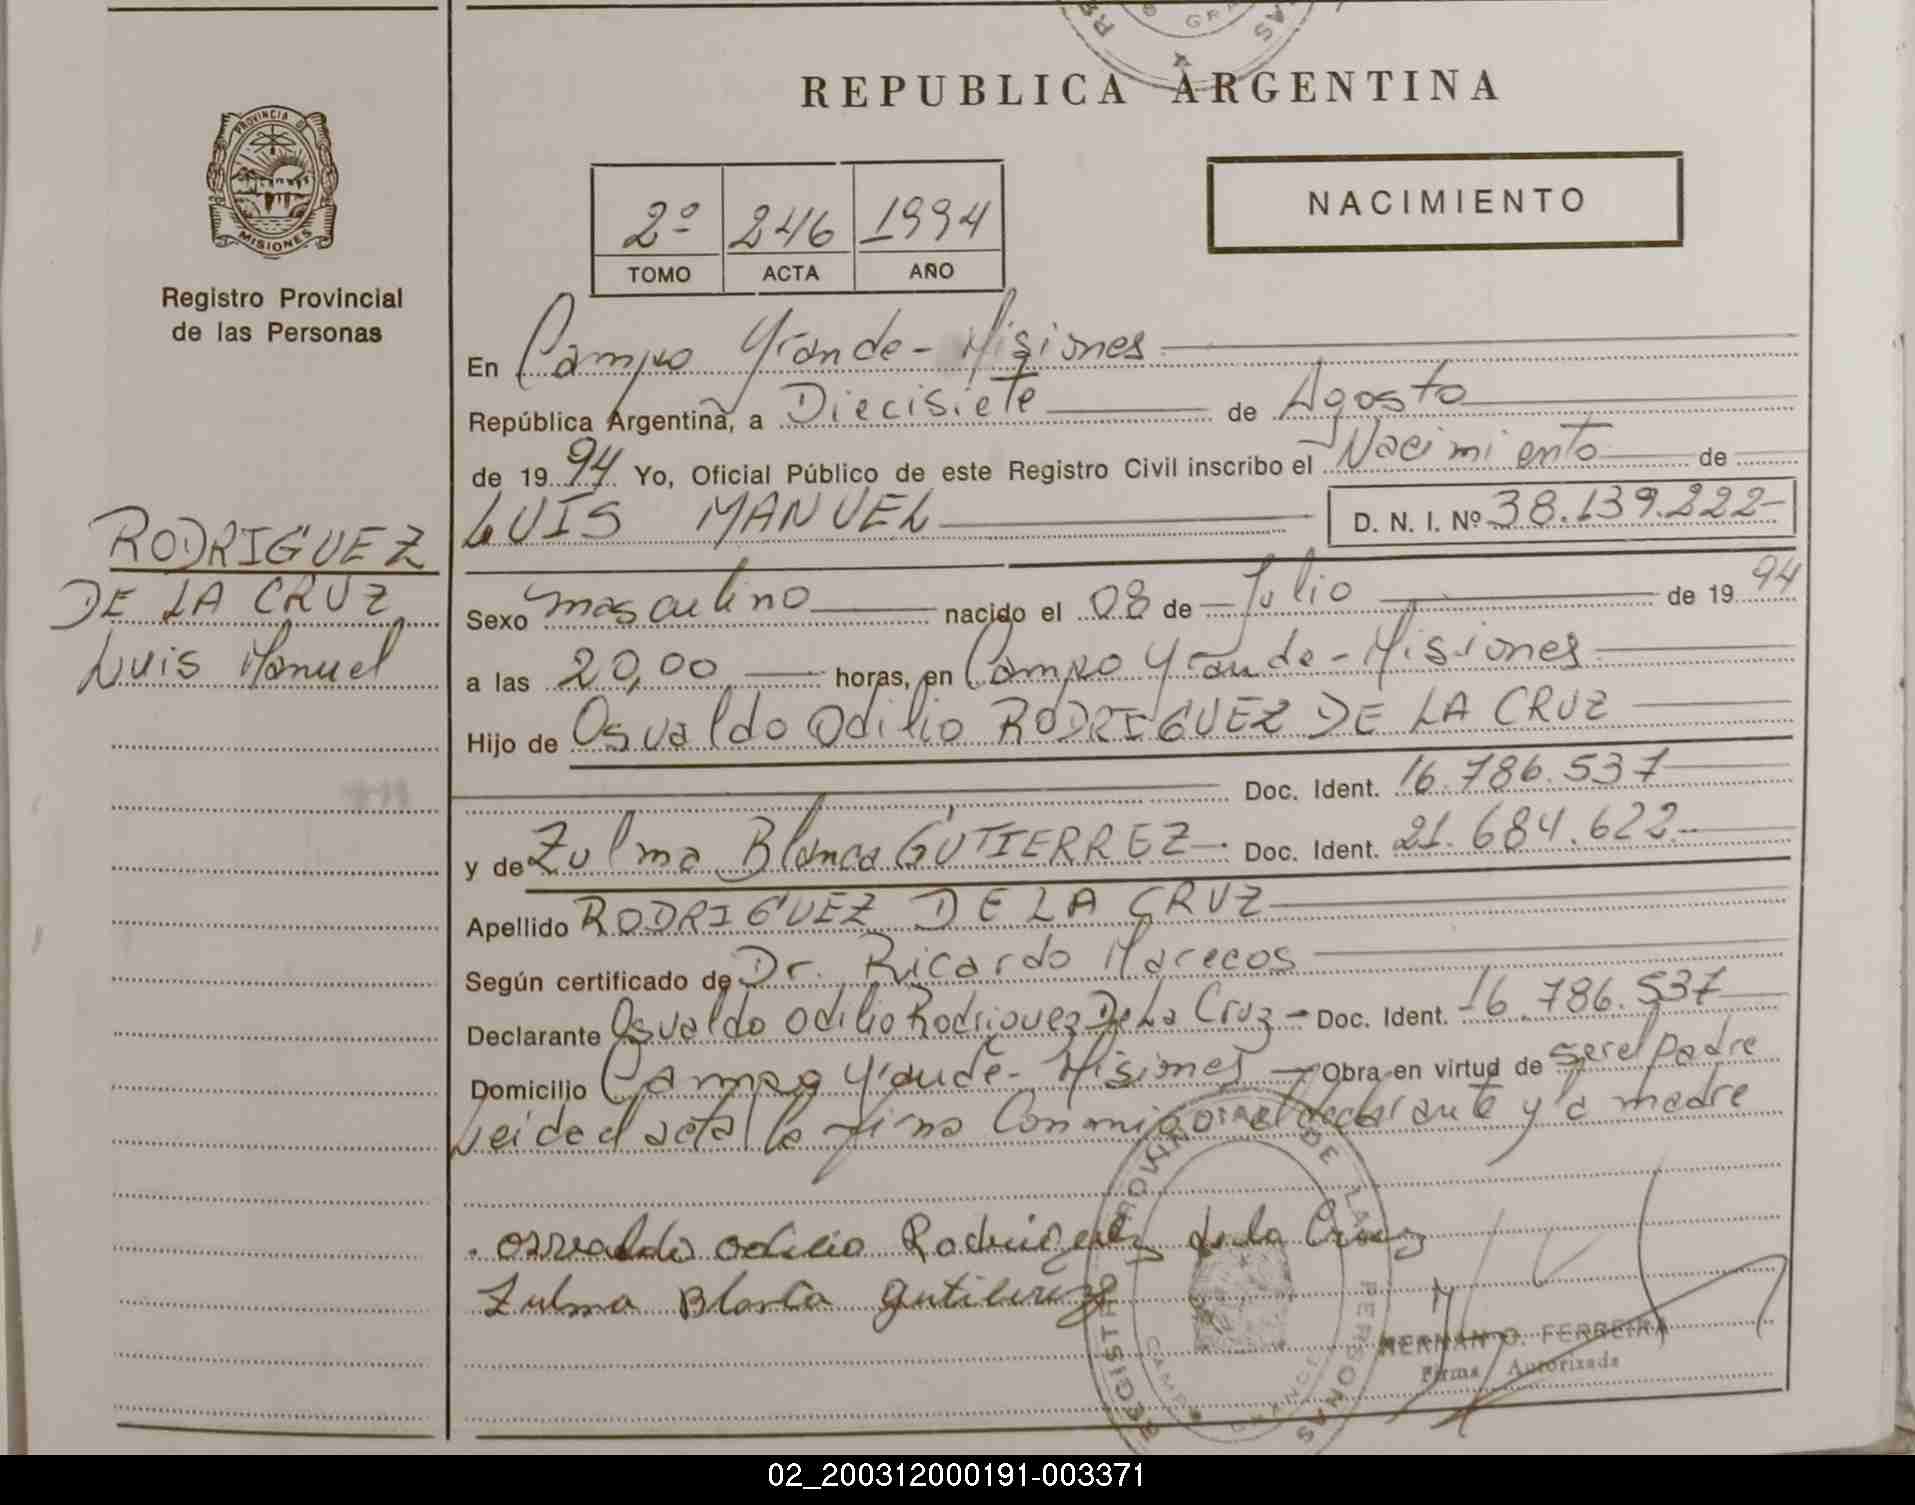 REPUBLICA ARGENTINA
PROVINCIA DE
MISIONES
Registro Provincial
de las Personas
2º 246 1994
TOMO ACTA AÑO
NACIMIENTO
En Campo Grande - Misiones
República Argentina, a Diecisiete de Agosto
de 19 94 Yo, Oficial Público de este Registro Civil inscribo el Nacimiento de
LUIS MANUEL D. N. I. Nº 38.139.222-
RODRIGUEZ
DE LA CRUZ
Luis Manuel
Sexo masculino nacido el 08 de Julio de 19 94
a las 20,00 horas, en Campo Grande - Misiones
Hijo de Osvaldo Odilio RODRIGUEZ DE LA CRUZ
Doc. Ident. 16.786.537
y de Zulma Blanca GUTIERREZ Doc. Ident. 21.684.622
Apellido RODRIGUEZ DE LA CRUZ
Según certificado de Dr. Ricardo Marecos
Declarante Osvaldo Odilio Rodriguez De La Cruz - Doc. Ident. 16.786.537
Domicilio Campo Grande - Misiones Obra en virtud de ser el padre
Leida el acta la firma conmigo el declarante y la madre
Osvaldo Odilio Rodriguez de la Cruz
Zulma Blanca Gutierrez
REGISTRO PROVINCIAL DE LAS PERSONAS
HERNAN O. FERREIRA
Firma Autorizada
02_200312000191-003371